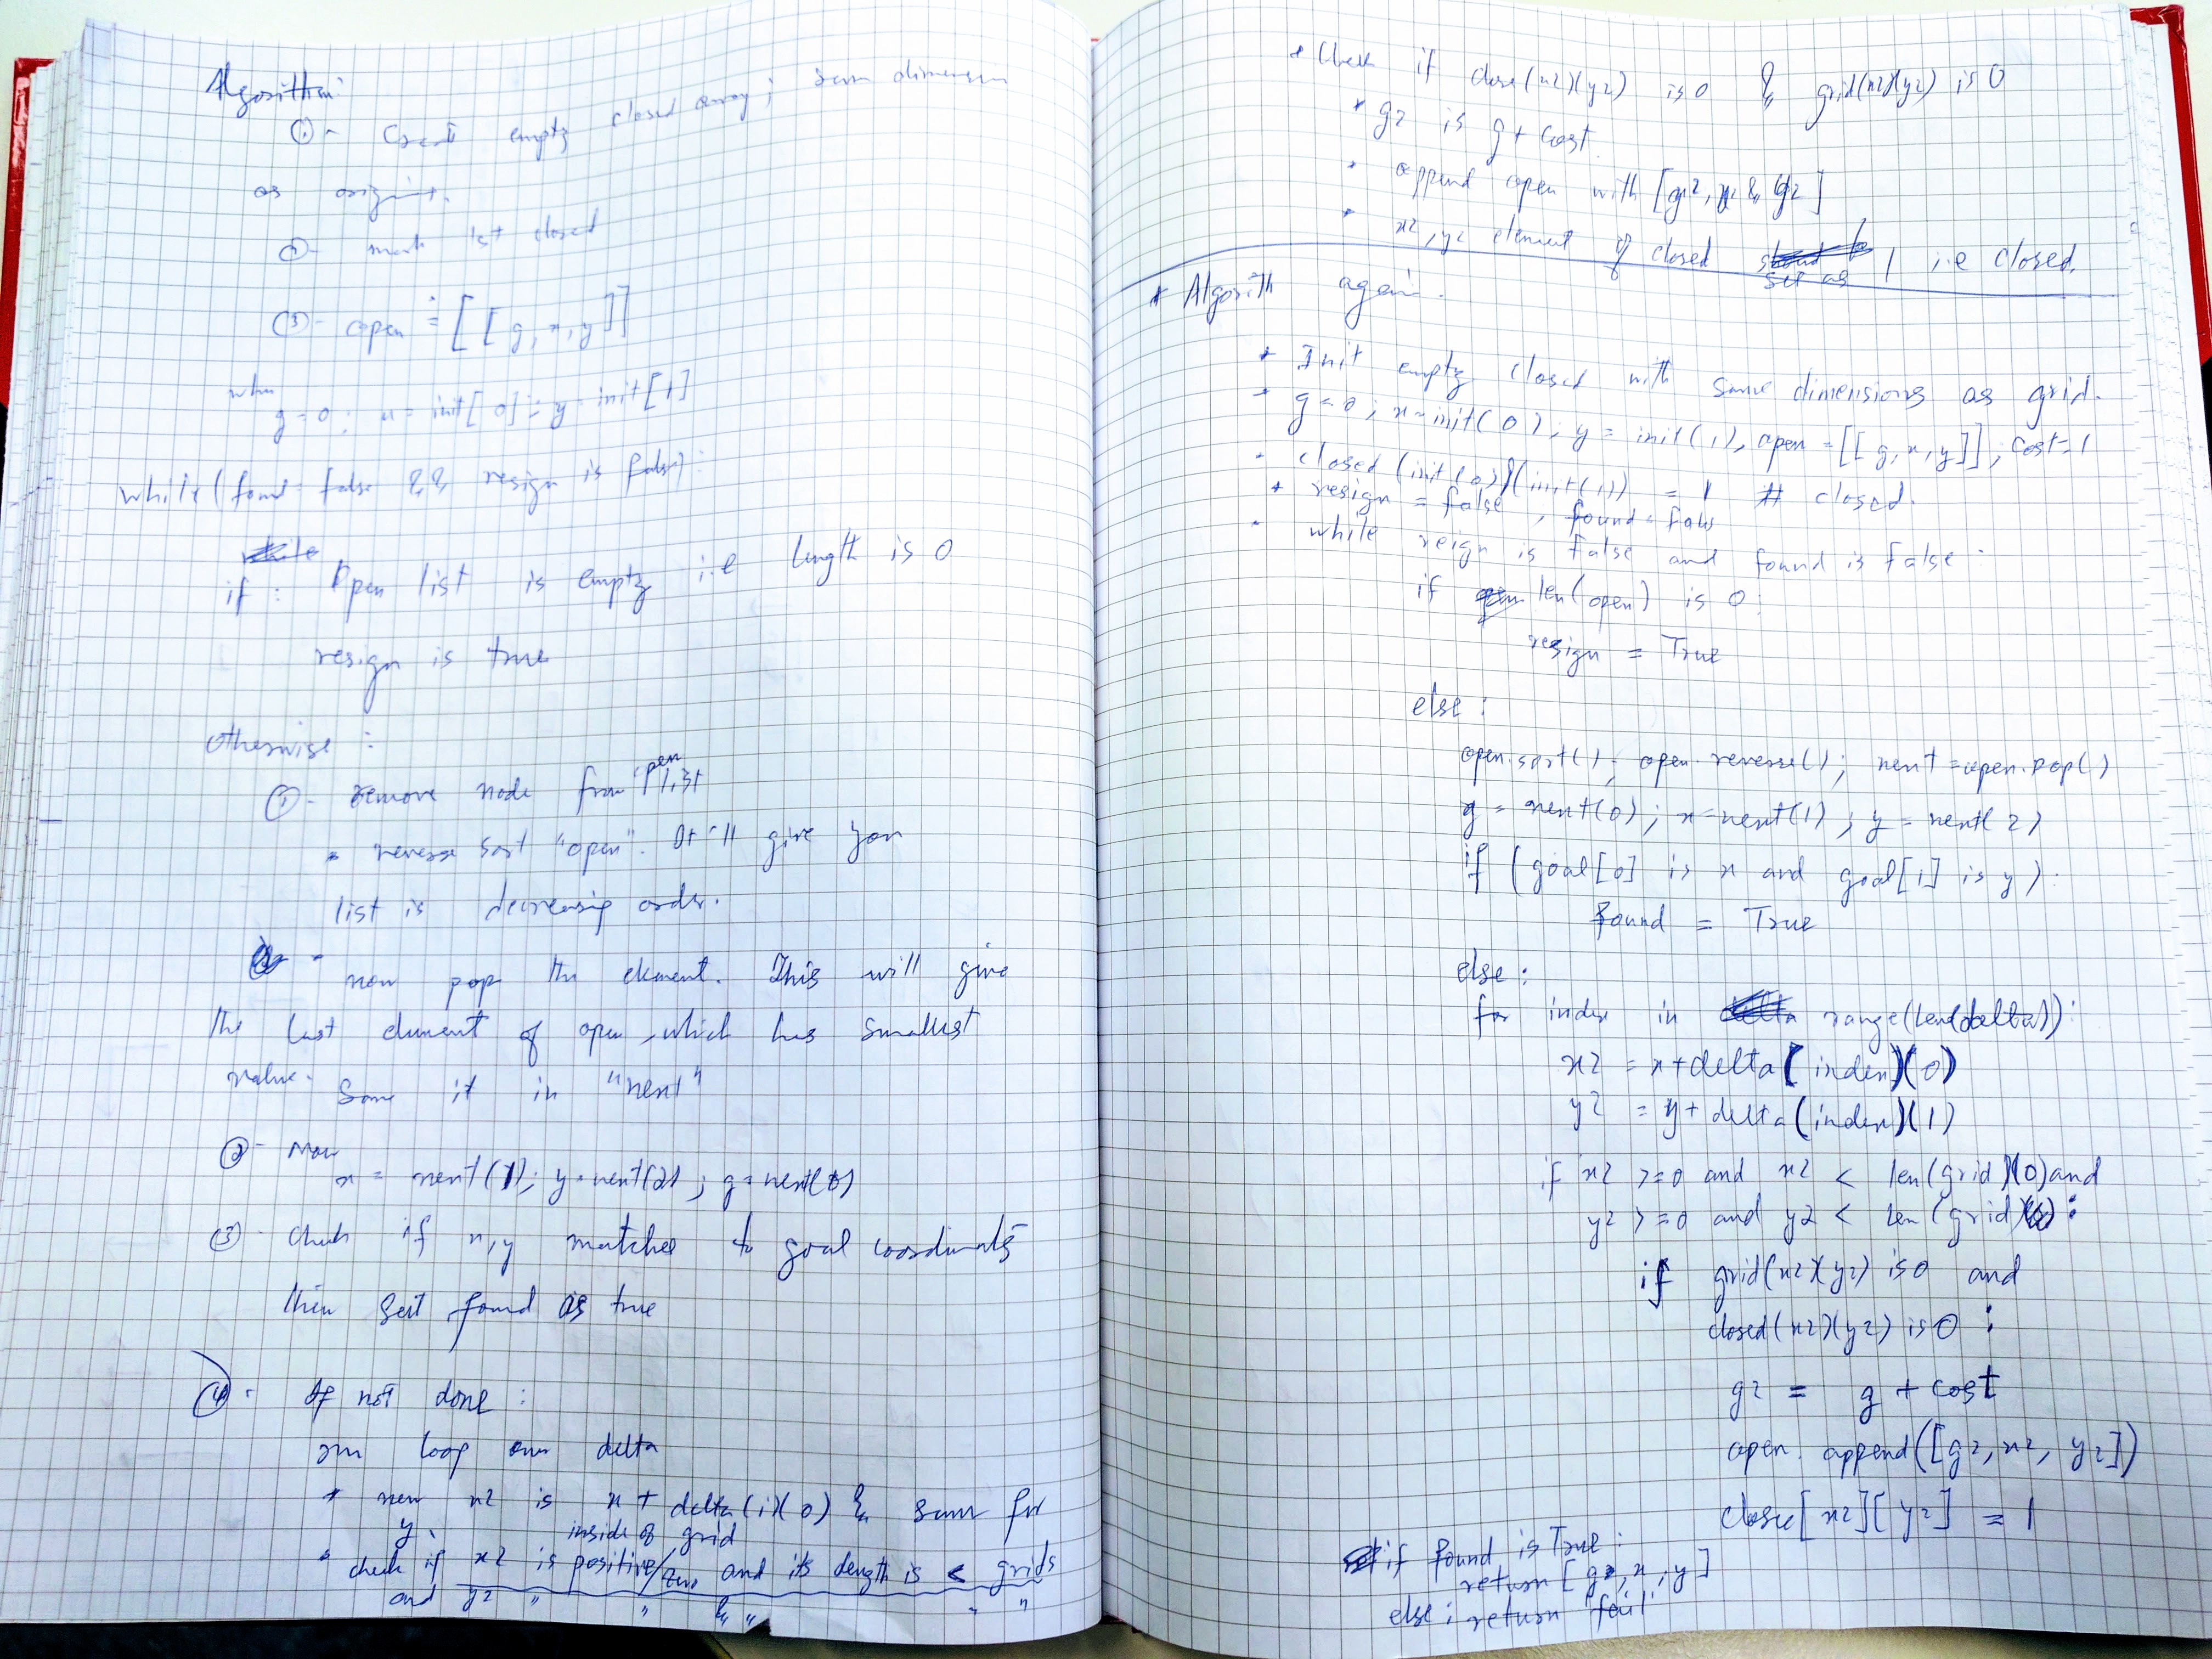 Algorithm:
①- Creat empty closed array; sam dimension
as origint.
②- mark 1st closed
③- open = [[g,x,y]]
when
g=0; x=init[0]; y=init[1]
while(found false && resign is false):
if: Open list is empty i.e length is 0
resign is true
Otherwise:
①- remove node from open list
* reverse sort "open". It'll give you
list is decreasing order.
- now pop the element. This will give
the last element of open, which has smallest
value. Save it in "next"
②- Now
x = next(1); y=next(2); g=next(0)
③ Check if x,y matches to goal coordinates
then set found as true
④. If not done:
run loop over delta
* new x2 is x+delta(i)(0) & same for
y.
inside of grid
* check if x2 is positive/zero and its length is < grids
and y2 " " & " " "
* Check if close(x2)(y2) is 0 & grid(x2)(y2) is 0
* g2 is g+cost.
* append open with [g2, x2 & y2]
* x2,y2 element of closed set as 1 i.e closed.
* Algorith again.
* Init empty closed with same dimensions as grid.
* g=0; x=init(0); y=init(1), open=[[g,x,y]]; cost=1
* closed(init(0))(init(1)) = 1 # closed.
* resign = false, found=false
* while reign is false and found is false:
if len(open) is 0:
resign = True
else:
open.sort(); open.reverse(); next=open.pop()
g = next(0); x=next(1); y=next(2)
if (goal[0] is x and goal[1] is y):
found = True
else:
for index in range(len(delta)):
x2 = x+delta(index)(0)
y2 = y+delta(index)(1)
if x2 >=0 and x2 < len(grid)(0) and
y2 >=0 and y2 < len(grid):
if grid(x2)(y2) is 0 and
closed(x2)(y2) is 0:
g2 = g + cost
open.append([g2,x2,y2])
close[x2][y2] = 1
if found is True:
return [g, x, y]
else: return "fail"